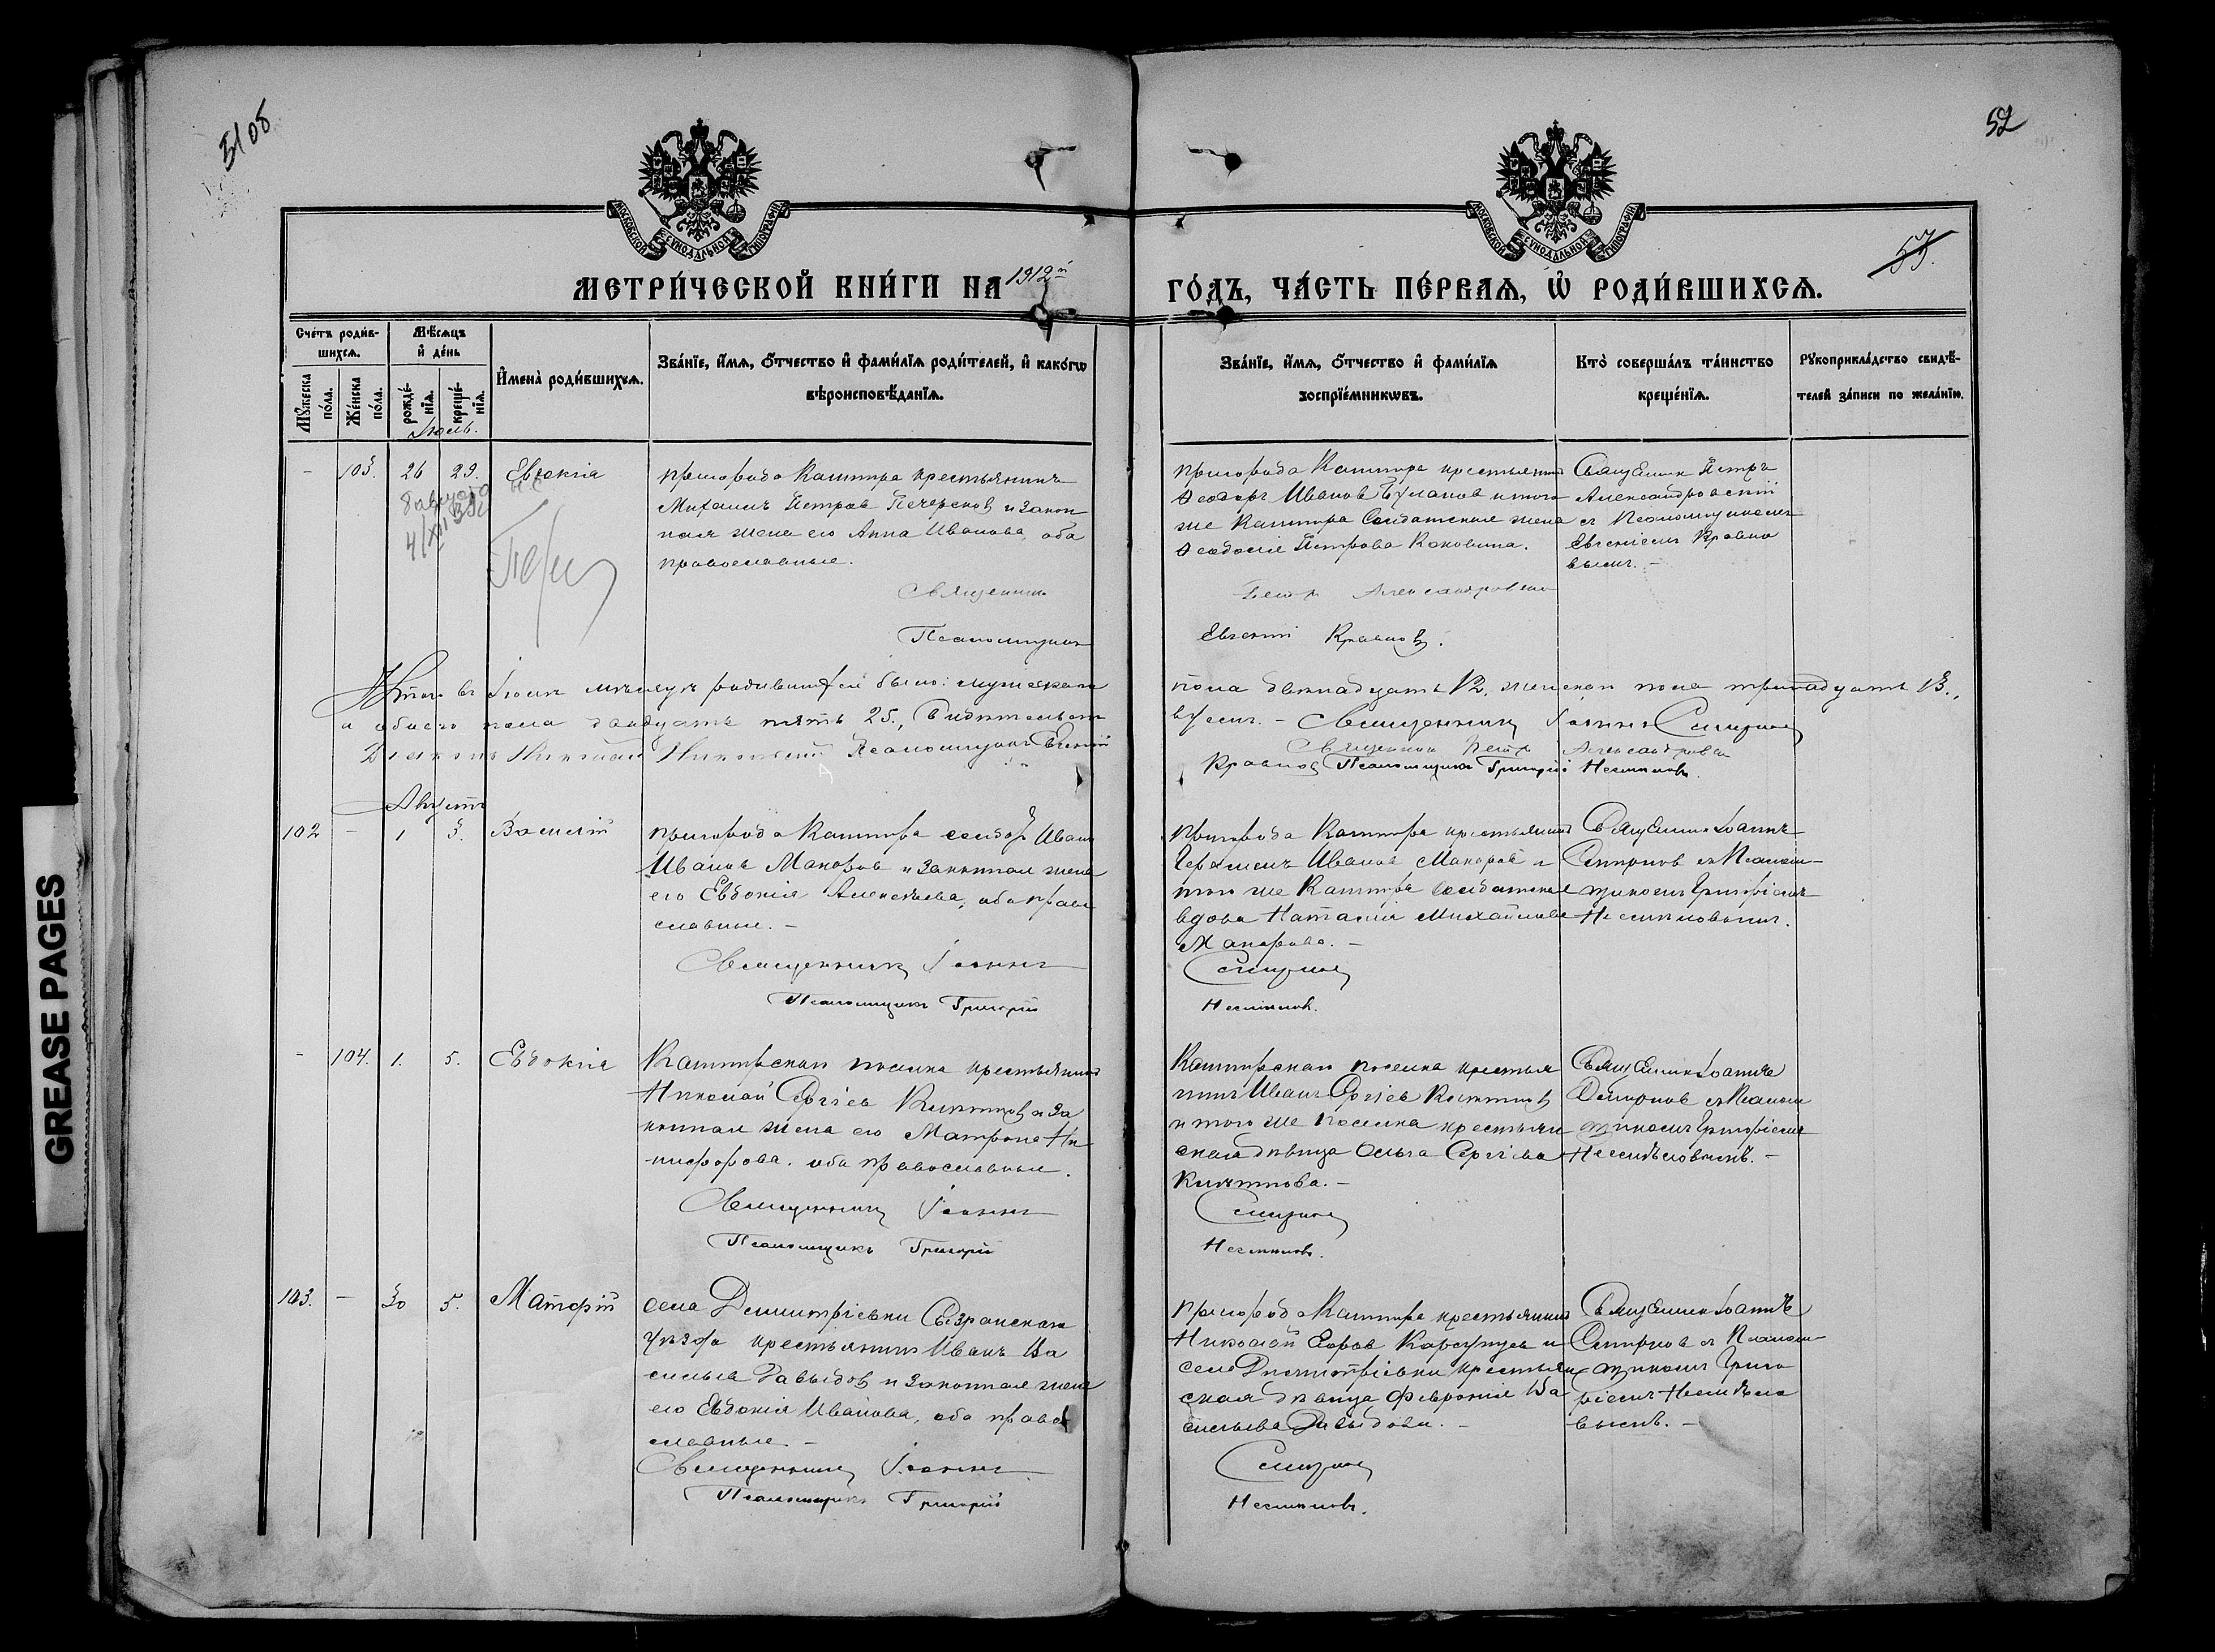 5108
52
53.
МОСКОВСКОЙ СѴНОДАЛЬНОЙ ТИПОГРАФІИ
МОСКОВСКОЙ СѴНОДАЛЬНОЙ ТИПОГРАФІИ
МЕТРИ́ЧЕСКОЙ КНИ́ГИ НА 1912й
ГО́ДЪ, ЧА́СТЬ ПЕ́РВАЯ, Ѡ РОДИ́ВШИХСЯ.
Сче́тъ роди́в-
шихся.
Мѣ́сяцъ
и де́нь
Мꙋ́жеска
по́ла.
Же́нска
по́ла.
рожде́-
нїя.
креще́-
нїя.
И҆мена̀ роди́вшихся.
Зва́нїе, и҆́мя, ѻ҆́тчество и҆ фами́лїя роди́телей, и҆ како́гѡ
вѣроисповѣ́данїя.
Зва́нїе, и҆́мя, ѻ҆́тчество и҆ фами́лїя
воспрїе́мникѡвъ.
Кто̀ соверша́лъ та́инство
креще́нїя.
Рꙋкоприкла́дство свидѣ́-
телей за́писи по жела́нїю.
Іюль.
- 103. 26 29. Евдокія
пригорода Кашпира крестьянинъ
Михаилъ Петровъ Печерсков и закон
ная жена его Анна Иванова, оба
православные.
Священникъ
Псаломщикъ
пригорода Кашпира крестьянинъ
Ѳеодоръ Иванов и того
же Кашпира Солдатская жена
Ѳеодосія Петрова
Петръ Александровскій
Евгеній Кравков.
Священник Петръ
Александровскій
съ Псаломщикомъ
Евгеніемъ Кравко
вымъ. -
Итого въ Іюлѣ мѣсяцѣ родившихся было: мужескаго
пола двѣнадцать 12, женскаго пола тринадцать 13.,
и обоего пола двадцать пять 25., Свидѣтельст
вуемъ. - Священникъ Іоаннъ Смирнов
Діаконъ Николай Псаломщикъ Евгеній
Священник Петръ Александровскій
Кравков Псаломщикъ Григорій
Августъ
102 - 1 3. Василій
пригорода Кашпира солдатъ Иванъ
Иванов Макаров и законная жена
его Евдокія Алексѣева, оба право
славные. -
Священникъ Іоаннъ
Псаломщикъ Григорій
пригорода Кашпира крестьянинъ
Герасимъ Иванов Макаров и
того же Кашпира солдатская
вдова Наталія Михайлова
Макарова. -
Смирнов
Священник Іоаннъ
Смирнов съ Псалом-
щикомъ Григоріемъ
- 104. 1. 5. Евдокія
Кашпирскаго поселка крестьянинъ
Николай Сергіев и за
конная жена его Матрона Ни
кифорова. оба православные.
Священникъ Іоаннъ
Псаломщикъ Григорій
Кашпирскаго поселка крестья
нинъ Иванъ Сергіев
и того же поселка крестьян
ская дѣвица Ольга Сергіева
Смирнов
Священник Іоаннъ
Смирнов съ Псалом
щикомъ Григоріемъ
103. - 30 5. Маторій
села Димитріевки Сызранскаго
уѣзда крестьянинъ Иванъ Ва
сильев Давыдов и законная жена
его Евдокія Иванова, оба право
славные. -
Священникъ Іоаннъ
Псаломщикъ Григорій
пригорода Кашпира крестьянинъ
Николай Егоров и
села Димитріевки крестьян
ская дѣвица Февронія Ва
сильева Давыдова. -
Смирнов
Священник Іоаннъ
Смирнов съ Псалом-
щикомъ Григо
ріемъ
вымъ. -
GREASE PAGES